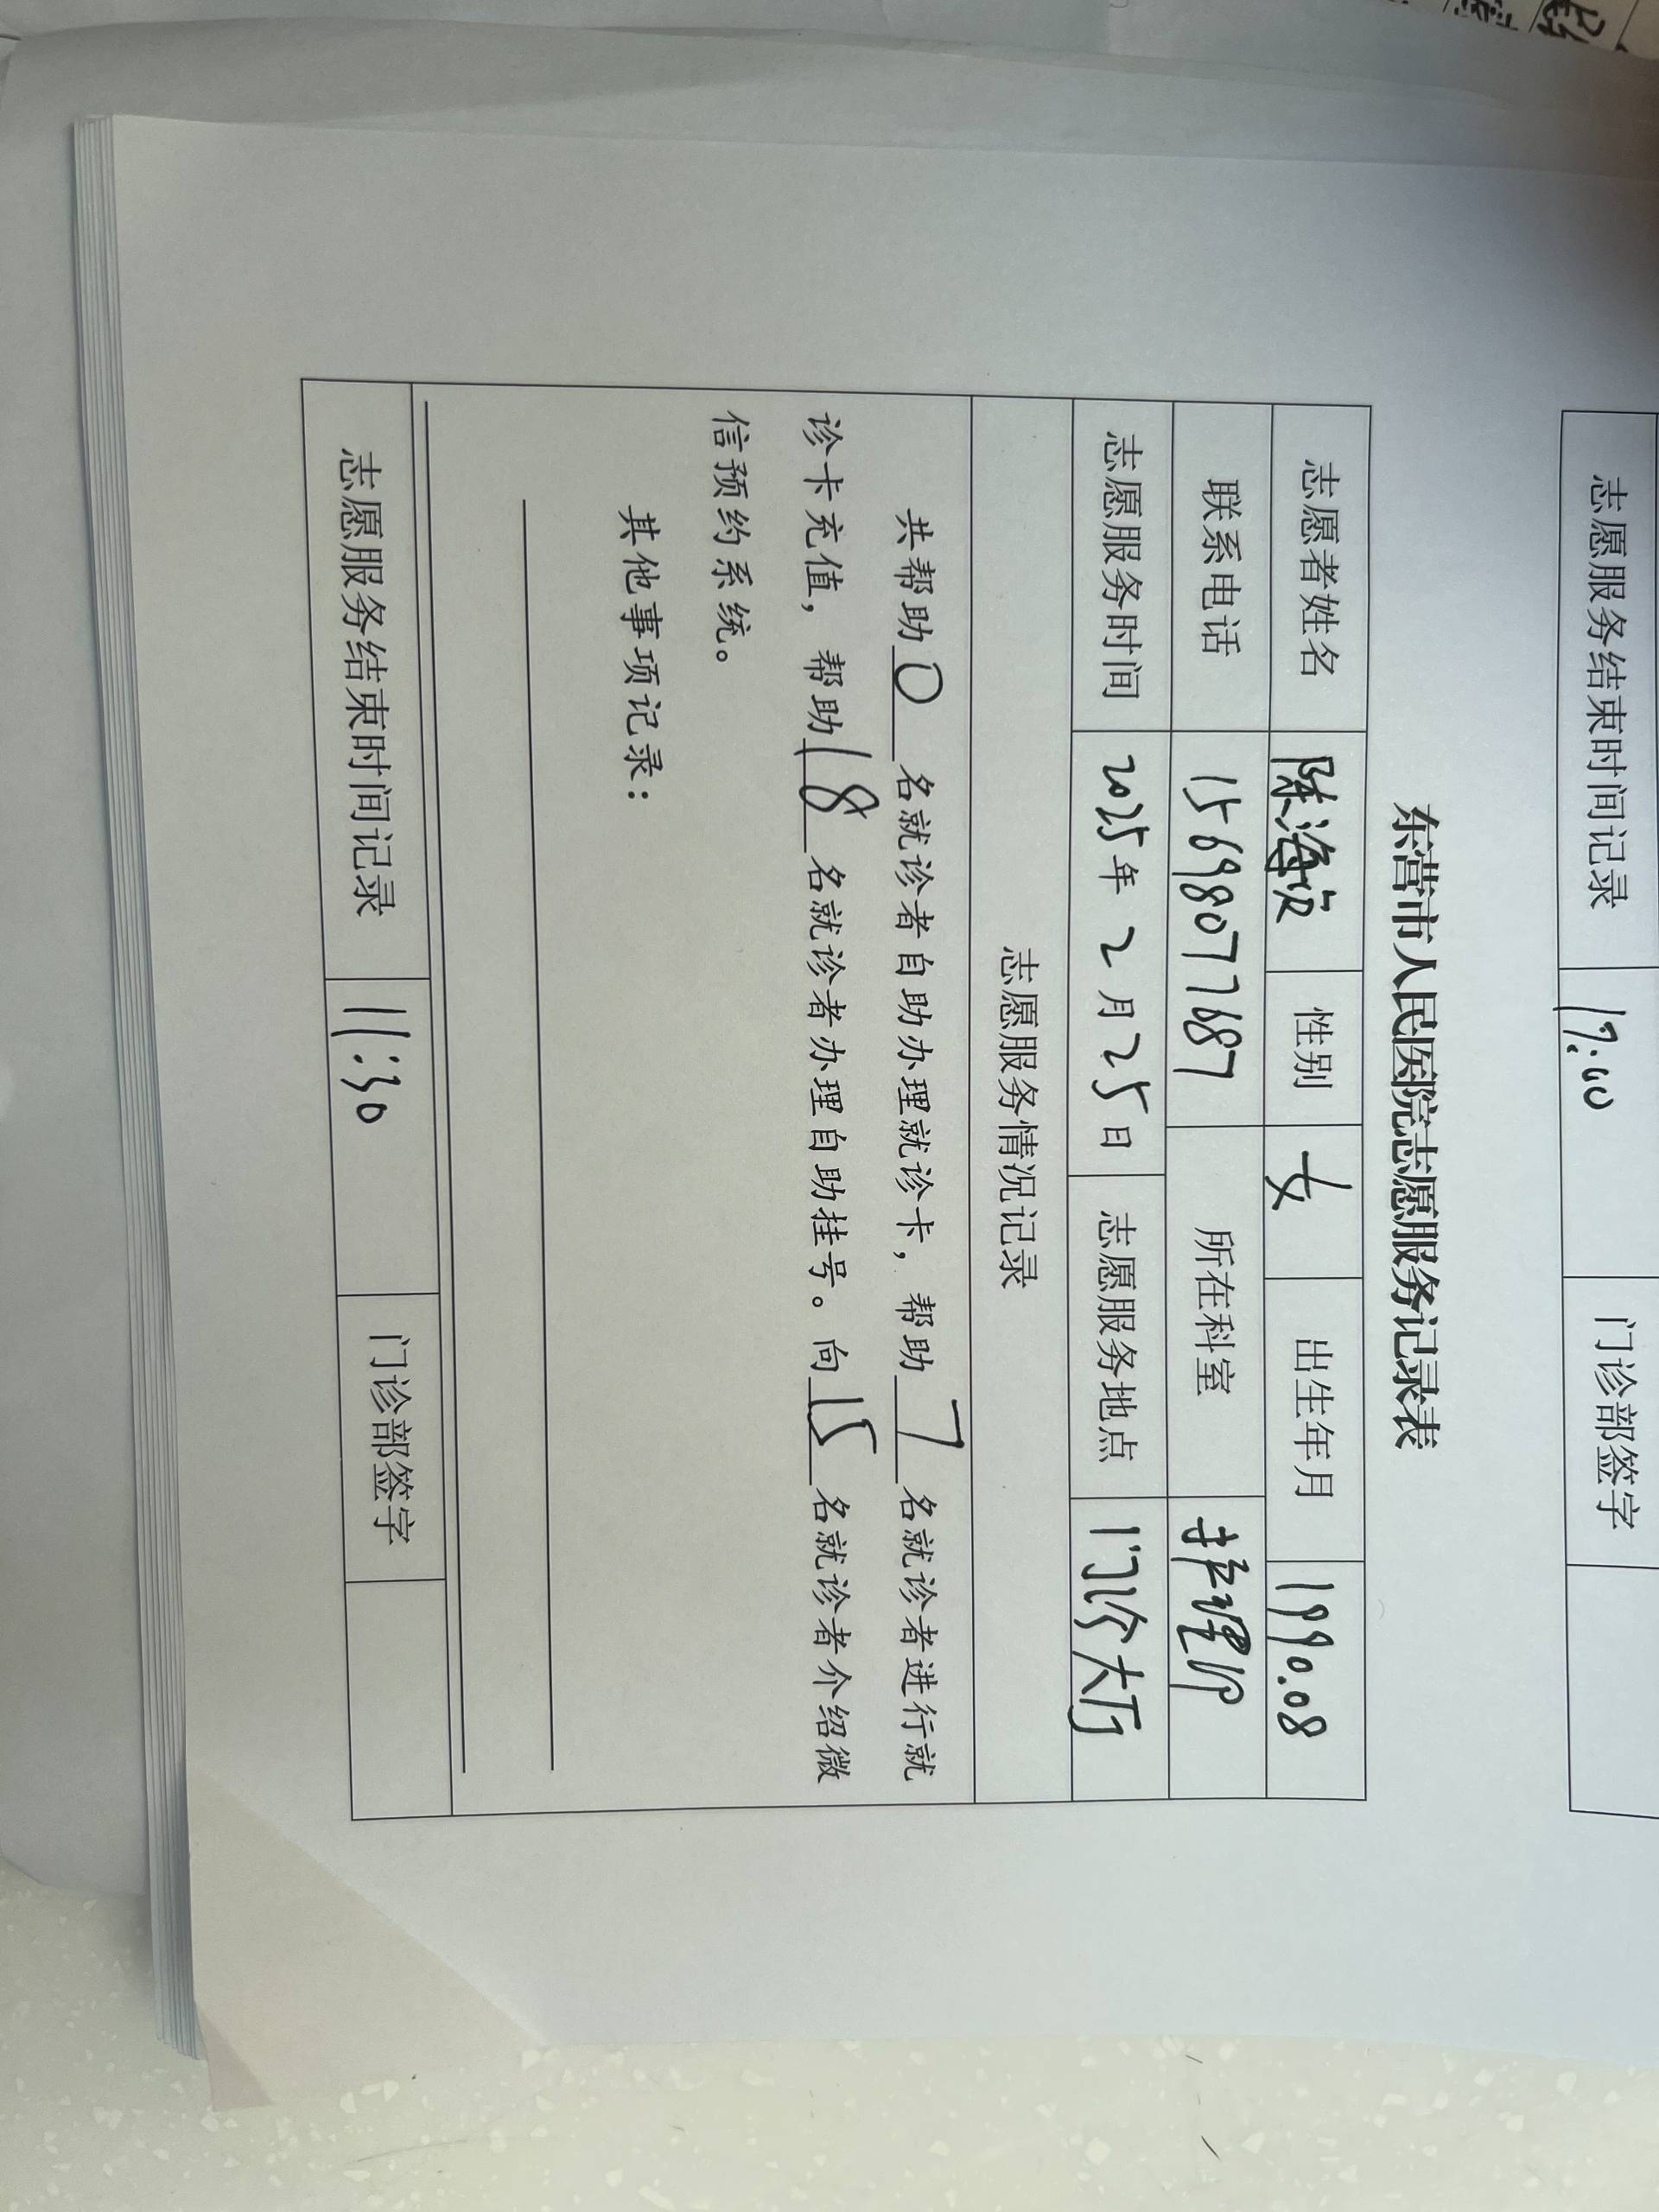 志愿服务结束时间记录 17:00 门诊部签字
东营市人民医院志愿服务记录表
志愿者姓名 陈海滨 性别 女 出生年月 1990.08
联系电话 15698077687 所在科室 护理部
志愿服务时间 2025年2月25日 志愿服务地点 门诊大厅
志愿服务情况记录
共帮助0名就诊者自助办理就诊卡，帮助7名就诊者进行就
诊卡充值，帮助18名就诊者办理自助挂号。向15名就诊者介绍微
信预约系统。
其他事项记录：
志愿服务结束时间记录 11:30 门诊部签字